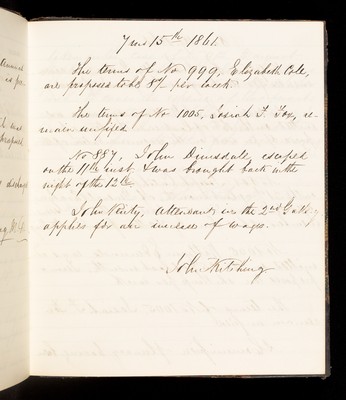 7 mo 15th 1861.
The terms of No 999, Elizabeth Cole,
are proposed to be 8/- per week.
The terms of No 1005, Josiah T. Fox, re-
main unfixed
No 887, John Dinsdale, escaped
on the 11th inst. & was brought back in the
night of the 12th.
John attendant in the 2nd Gallery
applies for an increase of wages.
John Kitching